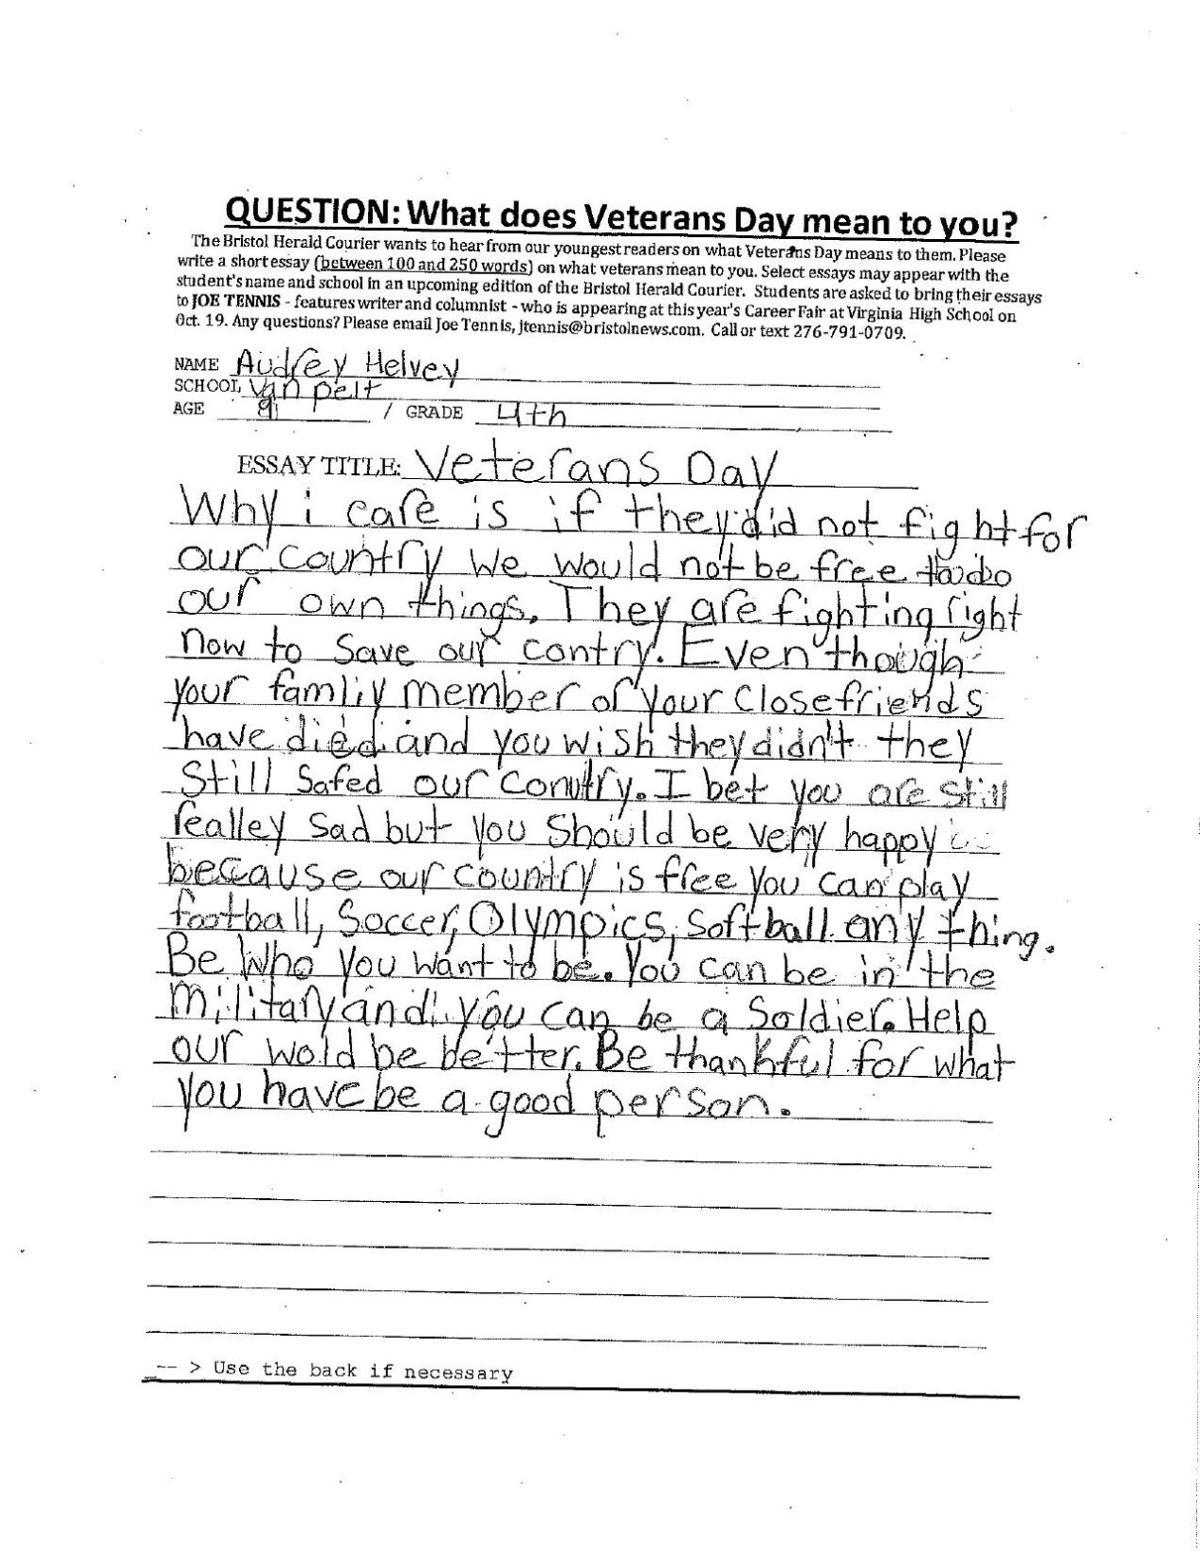 QUESTION: What does Veterans Day mean to you?
The Bristol Herald Courier wants to hear from our youngest readers on what Veterans Day means to them. Please
write a short essay (between 100 and 250 words) on what veterans mean to you. Select essays may appear with the
student's name and school in an upcoming edition of the Bristol Herald Courier. Students are asked to bring their essays
to JOE TENNIS - features writer and columnist - who is appearing at this year's Career Fair at Virginia High School on
Oct. 19. Any questions? Please email Joe Tennis, jtennis@bristolnews.com. Call or text 276-791-0709.
NAME Audrey Helvey
SCHOOL Van pelt
AGE 9 / GRADE 4th
ESSAY TITLE: Veterans Day
Why i care is if they did not fight for
our country we would not be free to do
our own things. They are fighting right
now to save our contry. Even though
your famliy member or your close friends
have died and you wish they didn't they
still safed our conutry. I bet you are still
realley sad but you should be very happy
because our country is free you can play
football, Soccer, Olympics, softball any thing.
Be who you want to be. You can be in the
military and you can be a soldier. Help
our wold be better. Be thankful for what
you have be a good person.
-- > Use the back if necessary